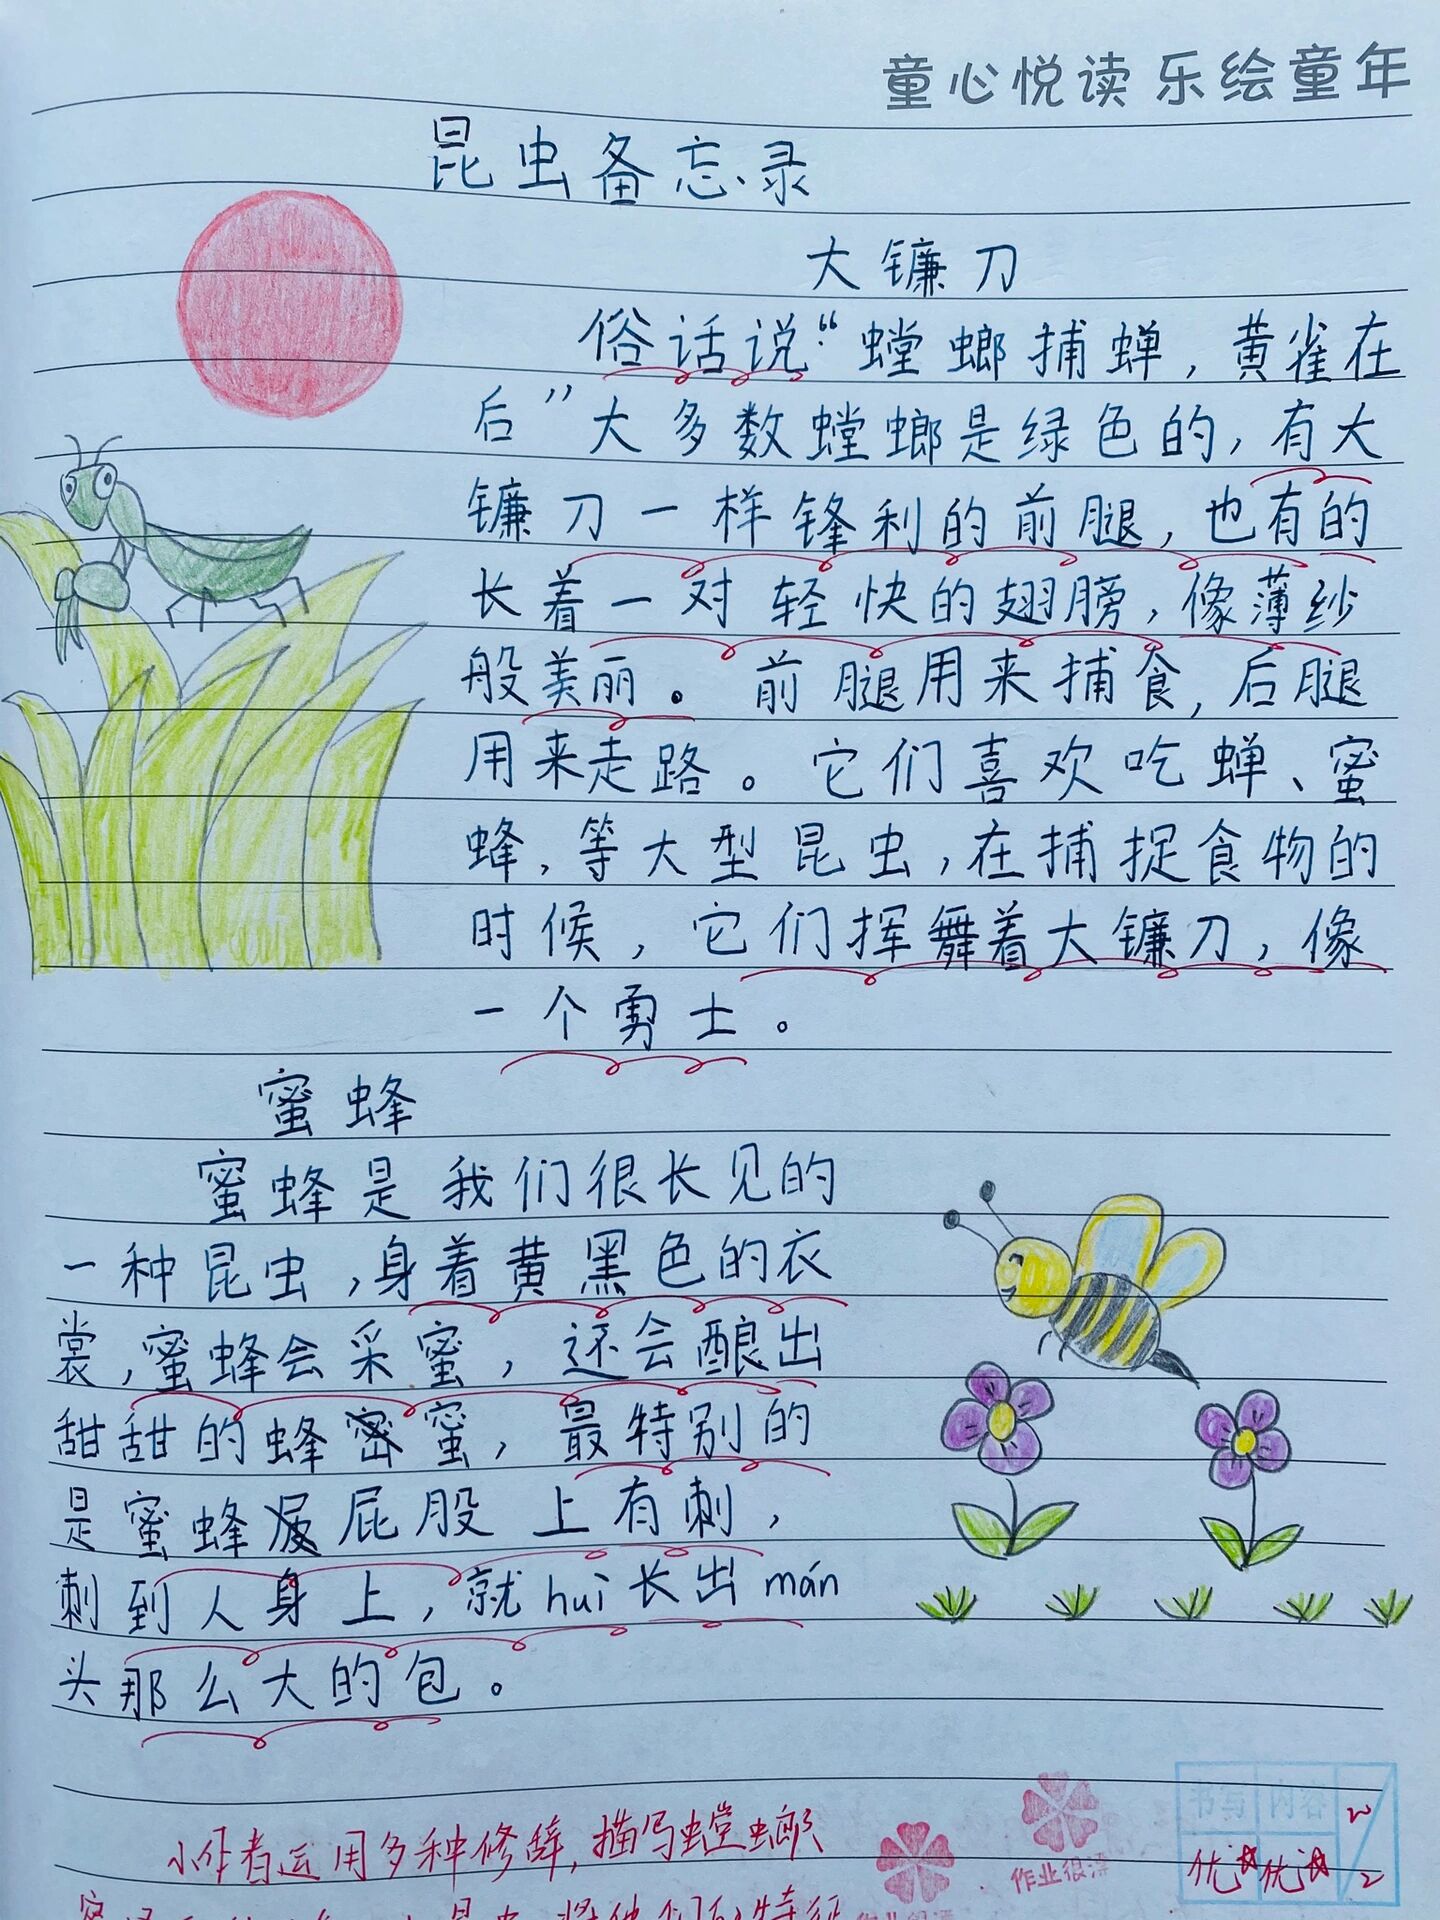 童心悦读 乐绘童年
昆虫备忘录
大镰刀
俗话说:“螳螂捕蝉,黄雀在
后”大多数螳螂是绿色的,有大
镰刀一样锋利的前腿,也有的
长着一对轻快的翅膀,像薄纱
般美丽。前腿用来捕食,后腿
用来走路。它们喜欢吃蝉、蜜
蜂,等大型昆虫,在捕捉食物的
时候,它们挥舞着大镰刀,像
一个勇士。
蜜蜂
蜜蜂是我们很长见的
一种昆虫,身着黄黑色的衣
裳,蜜蜂会采蜜,还会酿出
甜甜的蜂蜜,最特别的
是蜜蜂屁股上有刺,
刺到人身上,就huì长出mán
头那么大的包。
小作者运用多种修辞,描写螳螂
书写 内容
优☆ 优☆
作业很